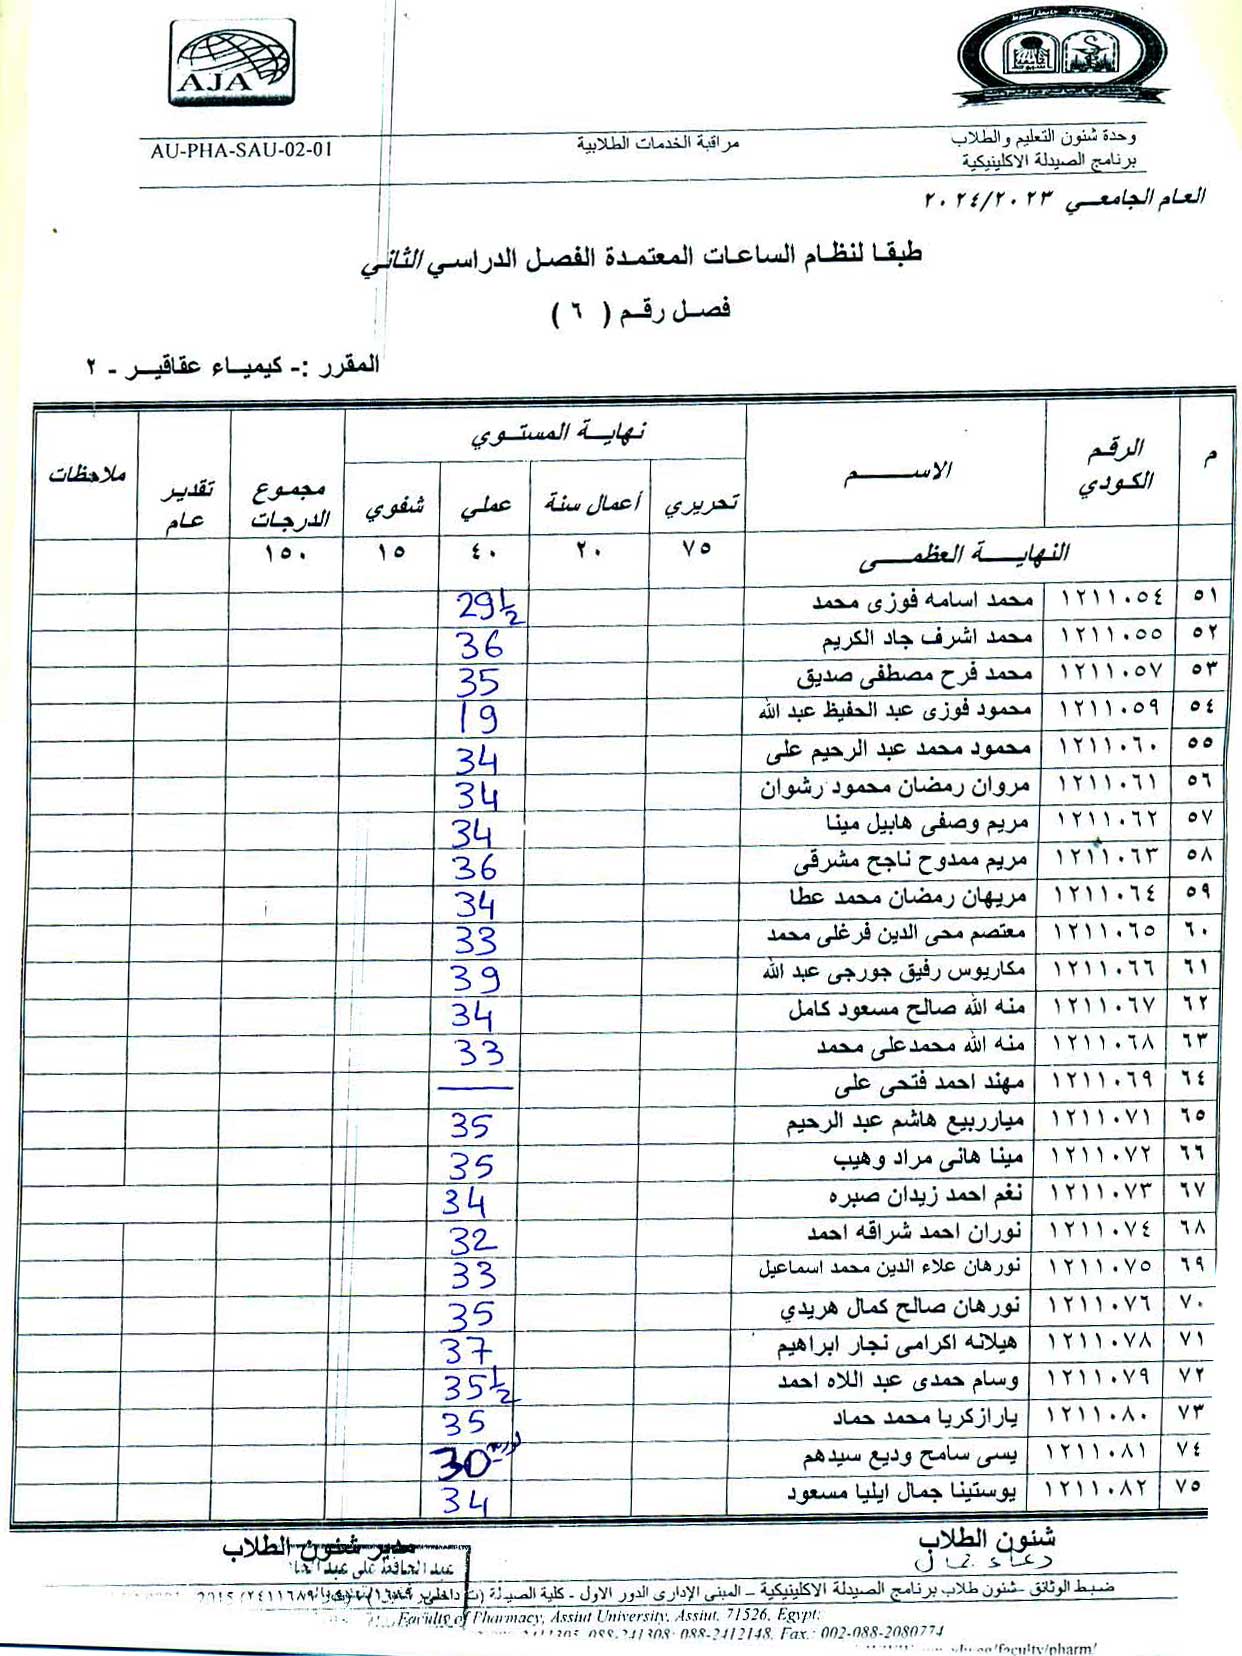 AJA
وحدة شئون التعليم والطلاب
برنامج الصيدلة الاكلينيكية
مراقبة الخدمات الطلابية
AU-PHA-SAU-02-01
العام الجامعي ٢٠٢٤/٢٠٢٣
طبقا لنظام الساعات المعتمدة الفصل الدراسي الثاني
فصل رقم ( ٦ )
المقرر :- كيمياء عقاقير - ٢
م الرقم الكودي الاسم نهاية المستوي مجموع الدرجات تقدير عام ملاحظات
تحريري أعمال سنة عملي شفوي
النهاية العظمى ٧٥ ٢٠ ٤٠ ١٥ ١٥٠
٥١ ١٢١١٠٥٤ محمد اسامه فوزى محمد 29 1/2
٥٢ ١٢١١٠٥٥ محمد اشرف جاد الكريم 36
٥٣ ١٢١١٠٥٧ محمد فرح مصطفى صديق 35
٥٤ ١٢١١٠٥٩ محمود فوزى عبد الحفيظ عبد الله 19
٥٥ ١٢١١٠٦٠ محمود محمد عبد الرحيم على 34
٥٦ ١٢١١٠٦١ مروان رمضان محمود رشوان 34
٥٧ ١٢١١٠٦٢ مريم وصفى هابيل مينا 34
٥٨ ١٢١١٠٦٣ مريم ممدوح ناجح مشرقى 36
٥٩ ١٢١١٠٦٤ مريهان رمضان محمد عطا 34
٦٠ ١٢١١٠٦٥ معتصم محى الدين فرغلى محمد 33
٦١ ١٢١١٠٦٦ مكاريوس رفيق جورجى عبد الله 39
٦٢ ١٢١١٠٦٧ منه الله صالح مسعود كامل 34
٦٣ ١٢١١٠٦٨ منه الله محمدعلى محمد 33
٦٤ ١٢١١٠٦٩ مهند احمد فتحى على —
٦٥ ١٢١١٠٧١ ميارربيع هاشم عبد الرحيم 35
٦٦ ١٢١١٠٧٢ مينا هانى مراد وهيب 35
٦٧ ١٢١١٠٧٣ نغم احمد زيدان صبره 34
٦٨ ١٢١١٠٧٤ نوران احمد شراقه احمد 32
٦٩ ١٢١١٠٧٥ نورهان علاء الدين محمد اسماعيل 33
٧٠ ١٢١١٠٧٦ نورهان صالح كمال هريدي 35
٧١ ١٢١١٠٧٨ هيلانه اكرامى نجار ابراهيم 37
٧٢ ١٢١١٠٧٩ وسام حمدى عبد اللاه احمد 35 1/2
٧٣ ١٢١١٠٨٠ يارازكريا محمد حماد 35
٧٤ ١٢١١٠٨١ يسى سامح وديع سيدهم 30
٧٥ ١٢١١٠٨٢ يوستينا جمال ايليا مسعود 34
شئون الطلاب
مدير شئون الطلاب
دعاء جمال
عبد الحافظ على عبد
ضبط الوثائق -شئون طلاب برنامج الصيدلة الاكلينيكية – المبنى الإدارى الدور الاول - كلية الصيدلة
Faculty of Pharmacy, Assiut University, Assiut, 71526, Egypt:
088-241308; 088-2412148, Fax.: 002-088-2080774